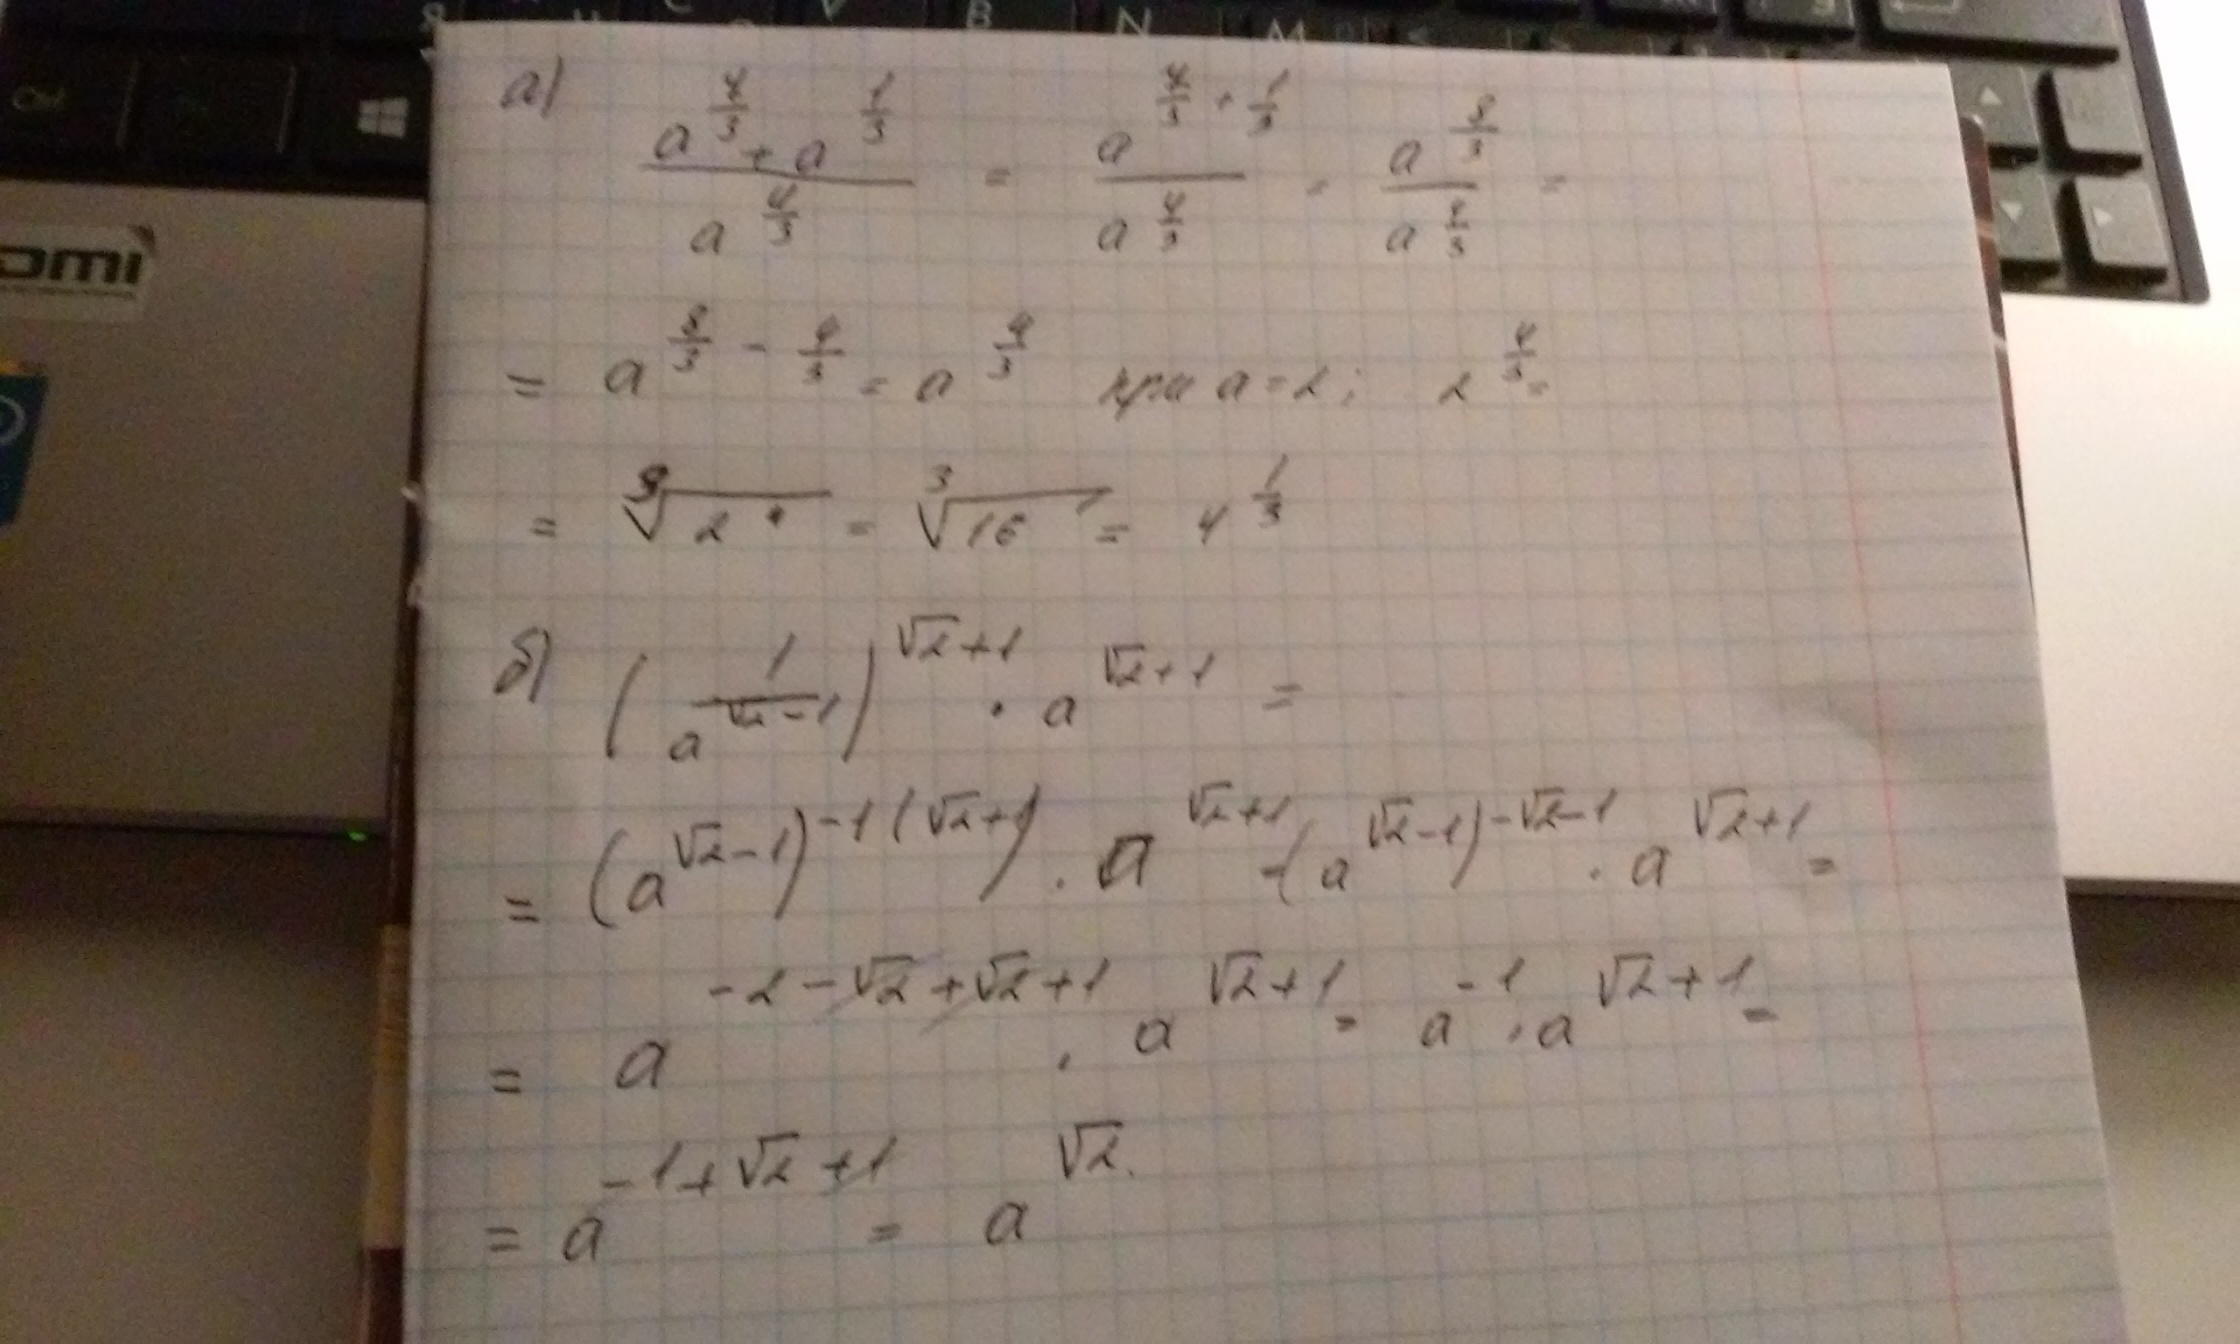 C V B N M
ami
а) (a^(7/3) + a^(1/3))/a^(4/3) = a^(7/3 + 1/3)/a^(4/3) = a^(8/3)/a^(4/3) =
= a^(8/3 - 4/3) = a^(4/3) при a = 2; 2^(4/3) =
= ∛(2^4) = ∛16 = 4^(1/3)
б) (1/a^(√2-1))^(√2+1) · a^(√2+1) =
= (a^(√2-1))^(-1(√2+1)) · a^(√2+1) = (a^(√2-1))^(-√2-1) · a^(√2+1) =
= a^(-2-√2+√2+1) · a^(√2+1) = a^(-1) · a^(√2+1) =
= a^(-1+√2+1) = a^(√2).